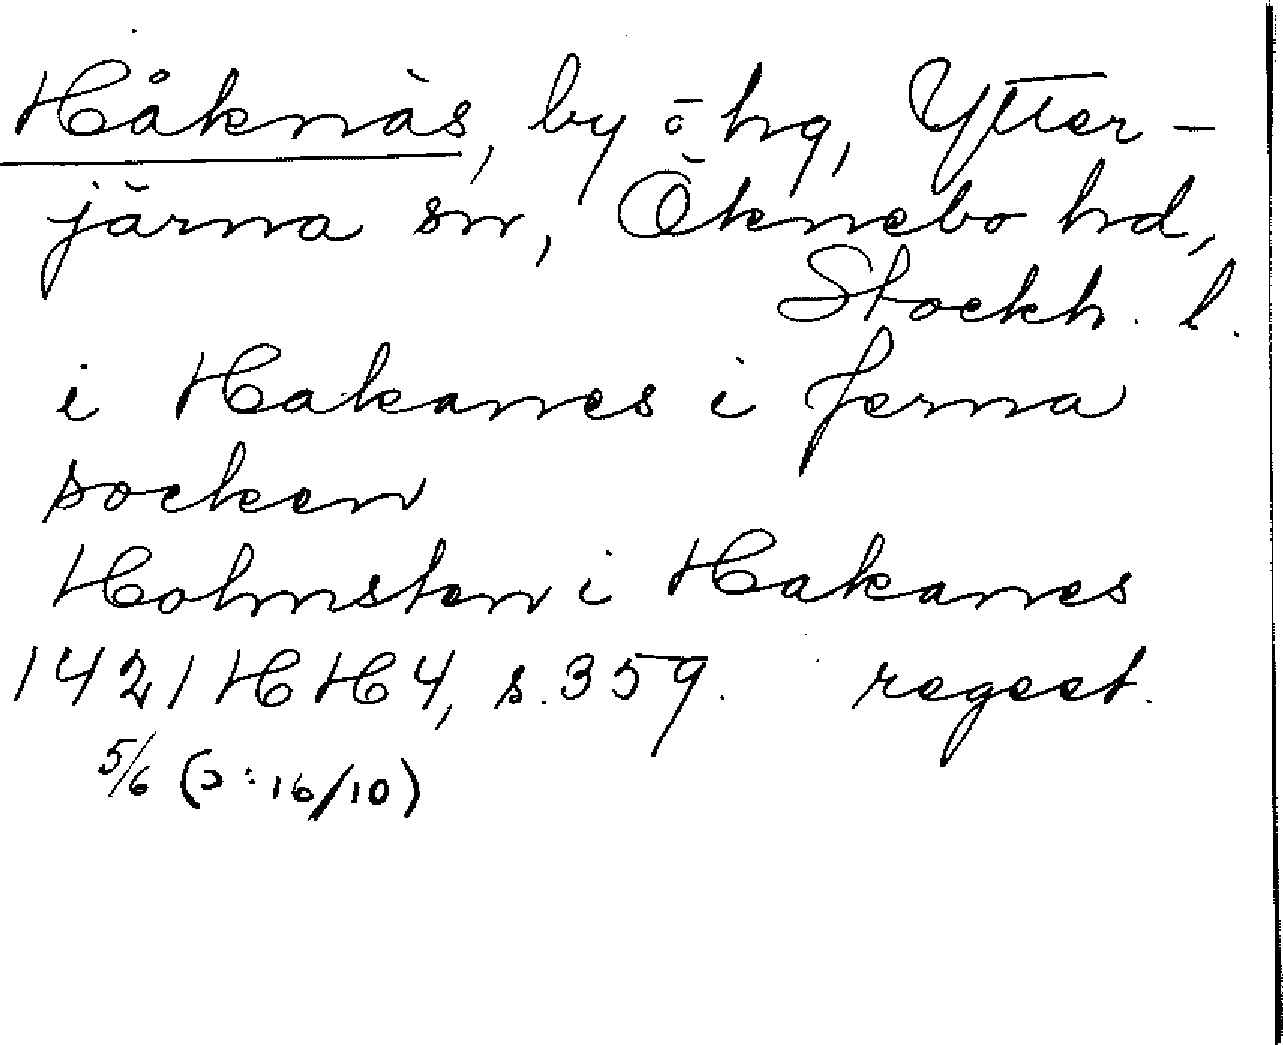 Håknäs, by ö hg, Ytter-
järna sn, Öknebo hd,
Stockh. l.
i Hakanes i Jerna
socken
Holmsten i Hakanes
1421 HH 4, s. 359. regest.
5/6 (ɔ: 16/10)